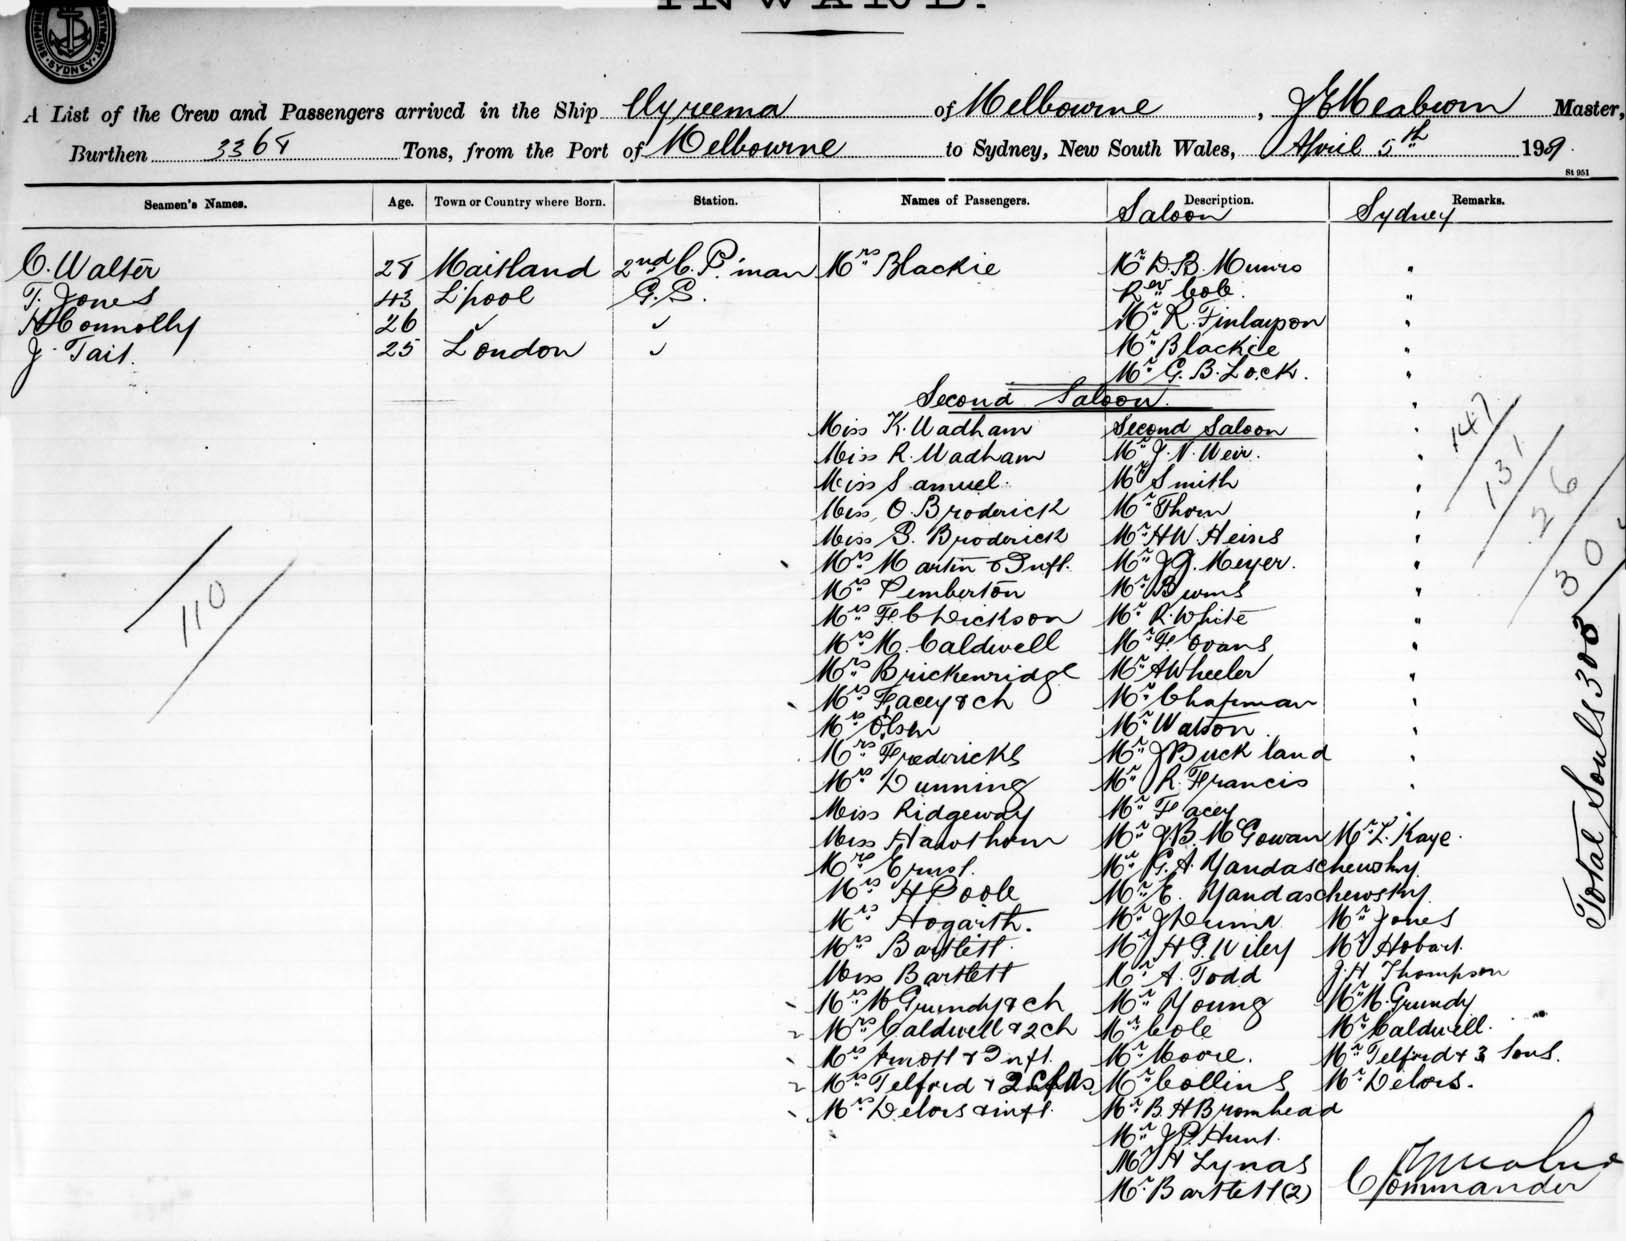 INWARD.
SYDNEY
A List of the Crew and Passengers arrived in the Ship Wyreema of Melbourne, Master,
Burthen 3368 Tons, from the Port of Melbourne to Sydney, New South Wales, April 5th 1909.
St 951
Seamen's Names. Age. Town or Country where Born. Station. Names of Passengers. Description. Remarks.
Saloon Sydney
C. Walter 28 Maitland 2nd C. P. man Mrs Blackie Mr D. B. Munro "
T. Jones 43 L'pool G.S. Rev Cole. "
H Connolly 26 " " Mr R. Finlayson "
J. Tait. 25 London " Mr Blackie "
Mr G. B. Lock. "
Second Saloon. "
Miss K. Wadham Second Saloon "
Miss R. Wadham Mr J. N. Weir. "
Miss Samuel. Mr Smith "
Miss O. Broderick Mr Thorn "
Miss S. Broderick Mr HW Heins "
Mrs Martin & Inft. Mr J G. Meyer. "
Mrs Pemberton Mr Burns "
Mrs F C Dickson Mr R. White "
Mrs M. Caldwell Mr F. Evans "
Mrs Brickenridge Mr A Wheeler "
Mrs Facey & ch Mr Chapman "
Mrs Olsen Mr Watson "
Mrs Fredericks Mr J Buckland "
Mrs Dunning Mr R. Francis "
Miss Ridgeway Mr Facey "
Miss Hawthorn Mr J. B. McGowan Mr L. Kaye.
Mrs Ernst. Mr G. A. Yandaschewsky.
Mrs H Poole Mr E. Yandaschewsky
Mrs Hogarth. Mr J Dunn Mr Jones
Mrs Bartlett. Mr H G. Wiley Mr Hobart.
Miss Bartlett Mr A. Todd J. H. Thompson
Mrs M Grundy & ch Mr Young Mr M. Grundy
Mrs Caldwell & 2 ch Mr Cole Mr Caldwell.
Mrs Arnott & Inft. Mr Moore. Mr Telford & 3 Sons.
Mrs Telford & 2 chds Mr Collins Mr Delors.
Mrs Delors & inft. Mr B. H Bromhead
Mr J P. Hunt.
Mr H Lynas
Mr Bartlett (2)
Commander
110
147
131
26
30
Total Souls 303